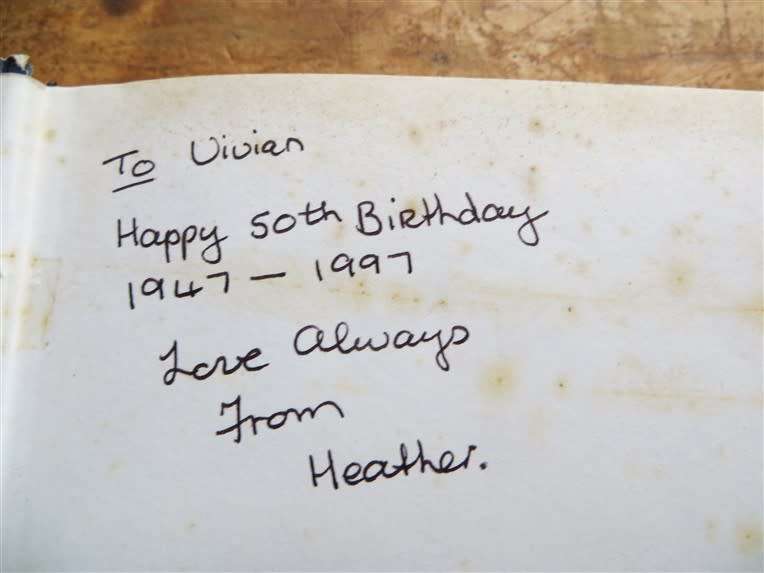 To Vivian
Happy 50th Birthday
1947 – 1997
Love Always
From
Heather.